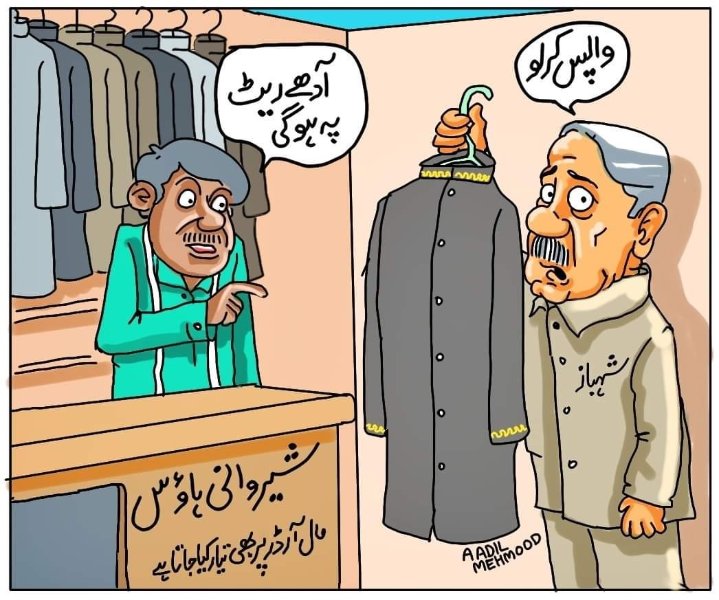 آدھے ریٹ
پہ ہوگی
واپس کرلو
شہباز
شیروانی ہاؤس
مال آرڈر پر بھی تیار کیا جاتا ہے
AADIL
MEHMOOD